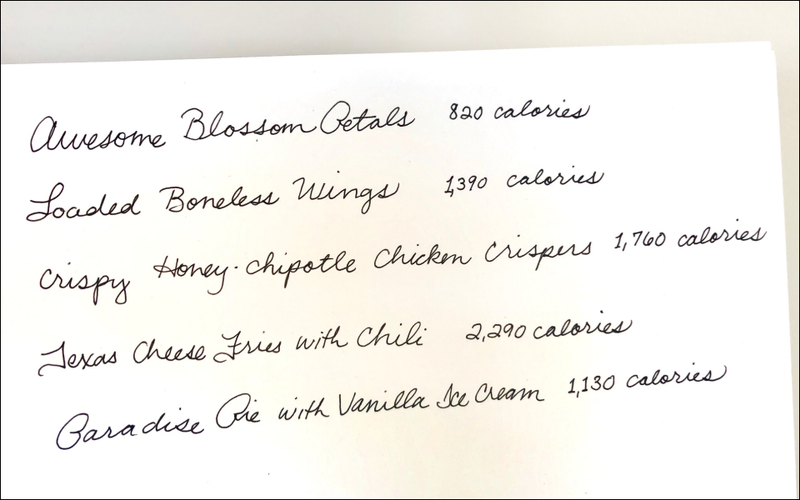 Awesome Blossom Petals 820 calories
Loaded Boneless Wings 1,390 calories
Crispy Honey-Chipotle Chicken Crispers 1,760 calories
Texas Cheese Fries with Chili 2,290 calories
Paradise Pie with Vanilla Ice Cream 1,130 calories